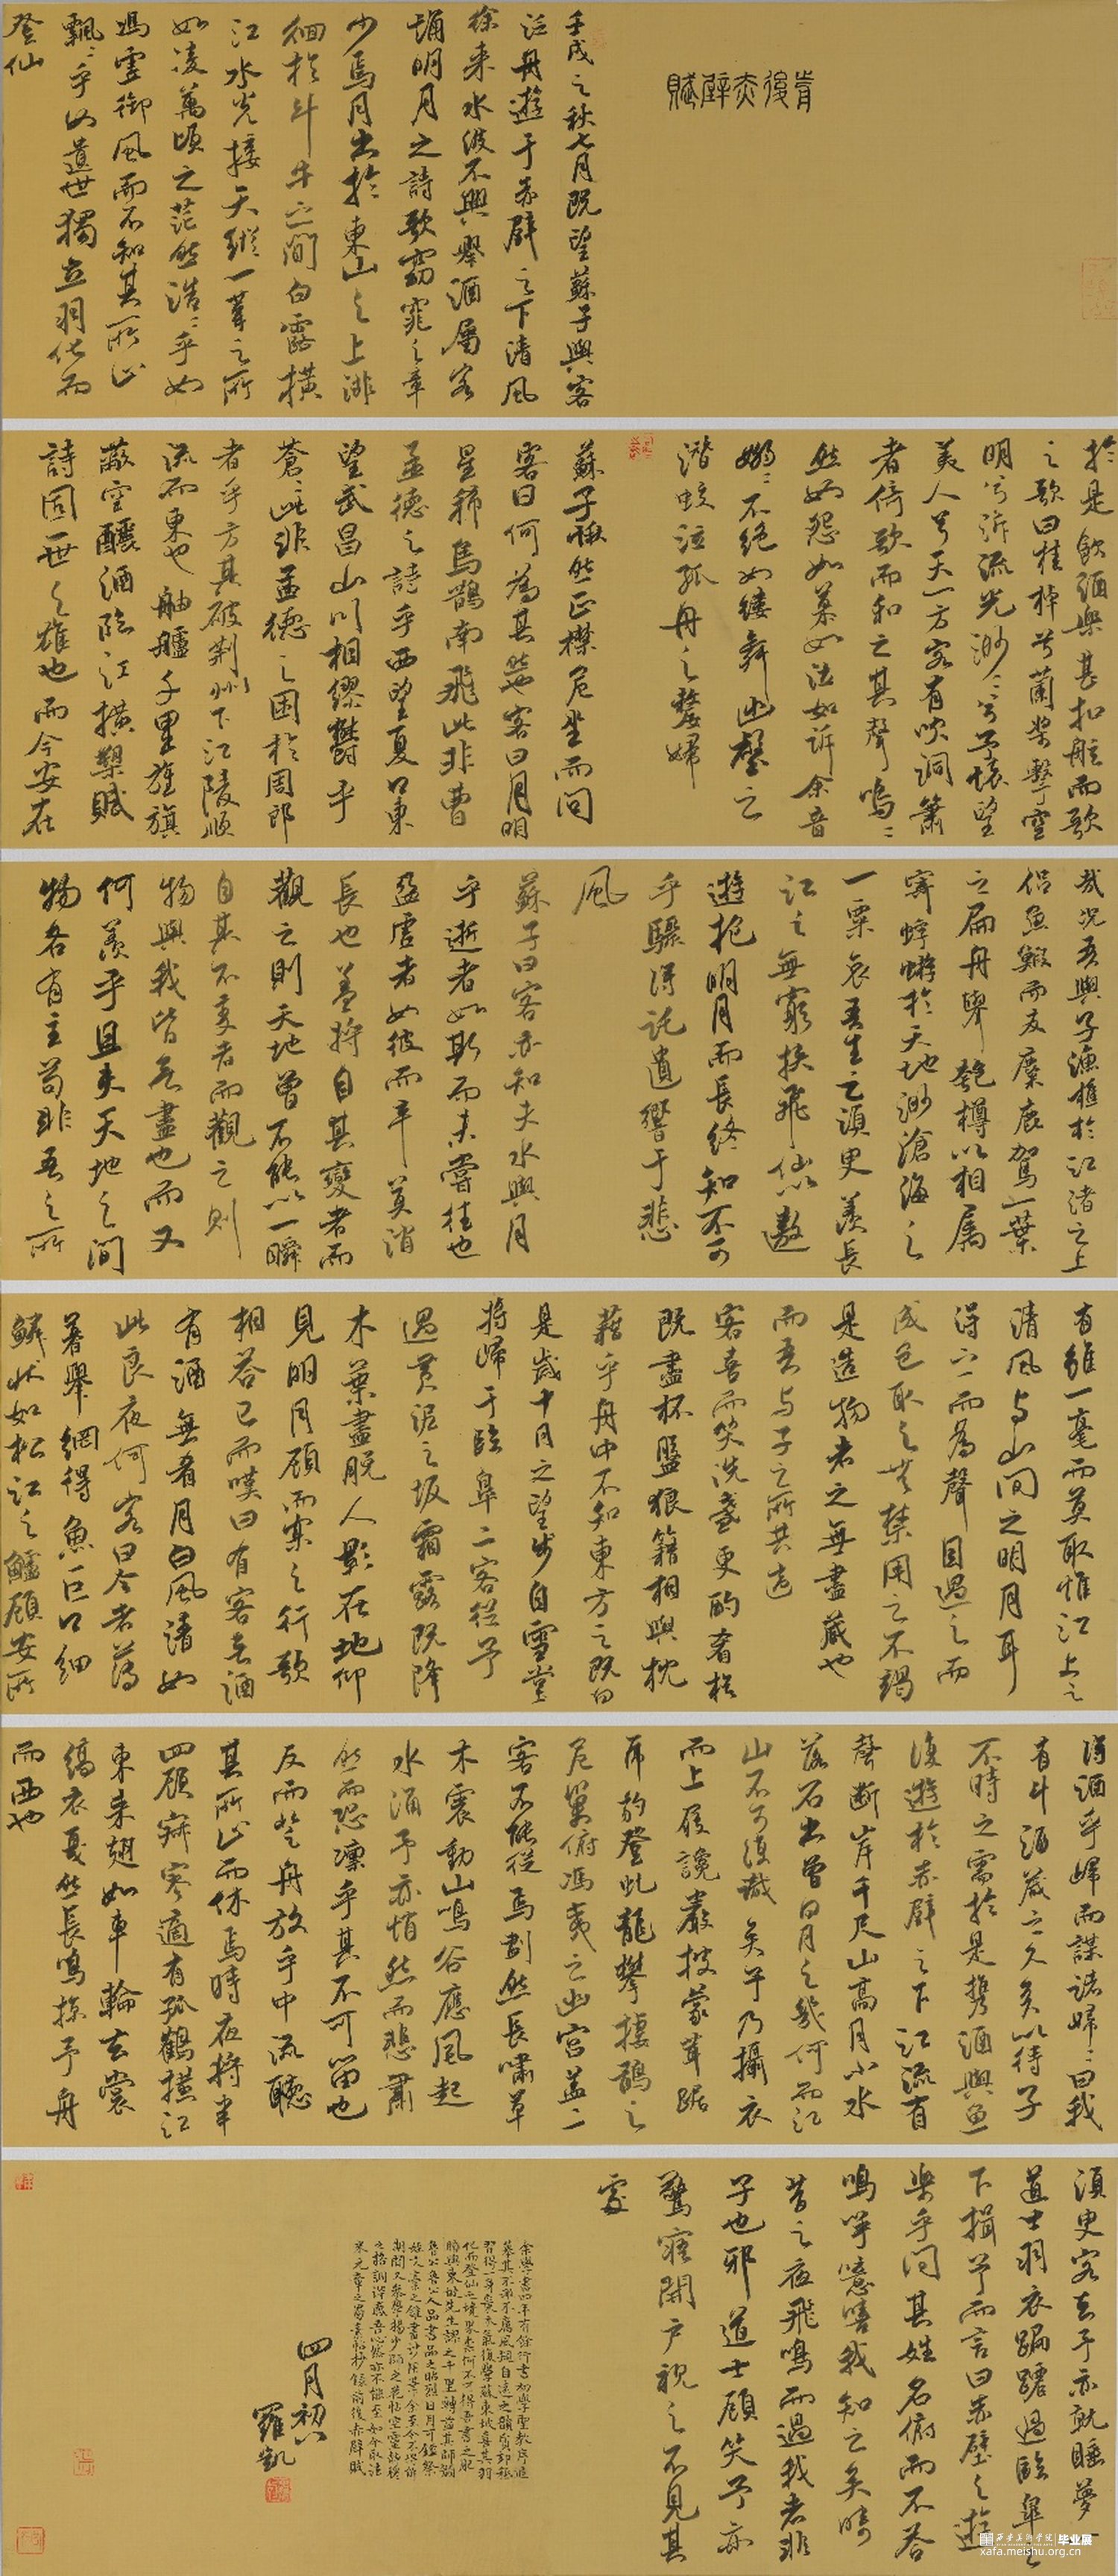 前後赤壁賦
壬戌之秋七月既望蘇子與客
泛舟遊于赤壁之下清風
徐来水波不興舉酒屬客
誦明月之詩歌窈窕之章
少焉月出於東山之上徘
徊於斗牛之間白露橫
江水光接天縱一葦之所
如凌萬頃之茫然浩〻乎如
馮虛御風而不知其所止
飄〻乎如遺世獨立羽化而
登仙
於是飲酒樂甚扣舷而歌
之歌曰桂棹兮蘭槳擊空
明兮泝流光渺〻兮予懷望
美人兮天一方客有吹洞簫
者倚歌而和之其聲嗚〻
然如怨如慕如泣如訴余音
嫋〻不絕如縷舞幽壑之
潛蛟泣孤舟之嫠婦
蘇子愀然正襟危坐而問
客曰何為其然也客曰月明
星稀烏鵲南飛此非曹
孟德之詩乎西望夏口東
望武昌山川相繆鬱乎
蒼〻此非孟德之困於周郎
者乎方其破荆州下江陵順
流而東也舳艫千里旌旗
蔽空釃酒臨江橫槊賦
詩固一世之雄也而今安在
哉況吾與子漁樵於江渚之上
侣魚鰕而友麋鹿駕一葉
之扁舟舉匏樽以相属
寄蜉蝣於天地渺滄海之
一粟哀吾生之須臾羨長
江之無窮挾飛仙以遨
遊抱明月而長終知不可
乎驟得託遺響于悲
風
蘇子曰客亦知夫水與月
乎逝者如斯而未嘗往也
盈虛者如彼而卒莫消
長也蓋將自其變者而
觀之則天地曾不能以一瞬
自其不變者而觀之則
物與我皆無盡也而又
何羨乎且夫天地之間
物各有主苟非吾之所
有雖一毫而莫取惟江上之
清風與山間之明月耳
得之而為聲目遇之而
成色取之無禁用之不竭
是造物者之無盡藏也
而吾与子之所共適
客喜而笑洗盞更酌肴核
既盡杯盤狼籍相與枕
藉乎舟中不知東方之既白
是歲十月之望步自雪堂
將歸于臨皋二客從予
過黃泥之坂霜露既降
木葉盡脫人影在地仰
見明月顧而樂之行歌
相荅已而嘆曰有客無酒
有酒無肴月白風清如
此良夜何客曰今者薄
暮舉網得魚巨口細
鱗狀如松江之鱸顧安所
得酒乎歸而謀諸婦〻曰我
有斗酒藏之久矣以待子
不時之需於是携酒與魚
復遊於赤壁之下江流有
聲断岸千尺山高月小水
落石出曾日月之幾何而江
山不可復識矣予乃攝衣
而上履巉巖披蒙茸踞
虎豹登虬龍攀棲鶻之
危巢俯馮夷之幽宮蓋二
客不能從焉劃然長嘯草
木震動山鳴谷應風起
水涌予亦悄然而悲肅
然而恐凛乎其不可留也
反而登舟放乎中流聽
其所止而休焉時夜將半
四顧寂寥適有孤鶴橫江
東來翅如車輪玄裳
縞衣戛然長鳴掠予舟
而西也
須臾客去予亦就睡夢一
道士羽衣蹁躚過臨皋之
下揖予而言曰赤壁之遊
樂乎問其姓名俯而不荅
嗚呼噫嘻我知之矣疇
昔之夜飛鳴而過我者非
子也邪道士顧笑予亦
驚寤開戶視之不見其
處
四月初八
羅凱
西安美術學院 毕业展
xafa.meishu.org.cn